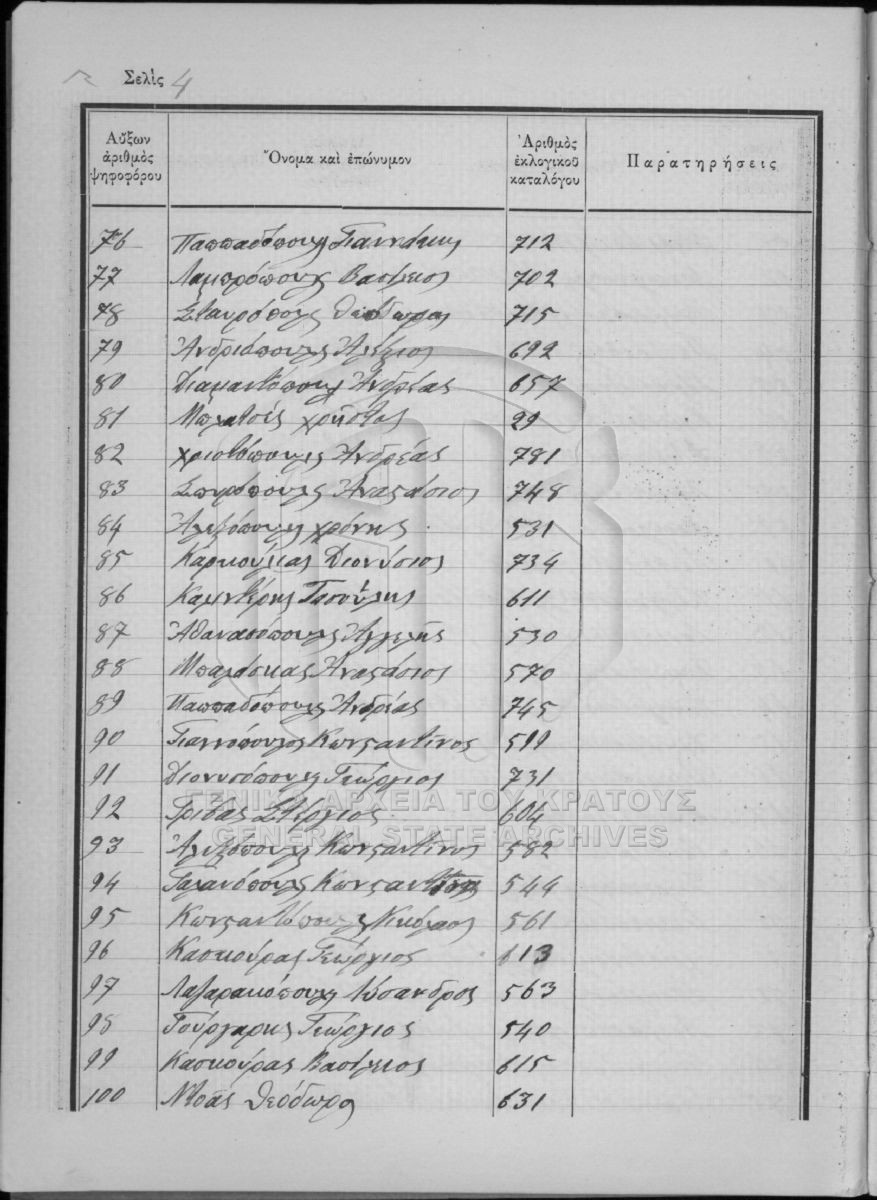 Σελὶς 4
Αὔξων ἀριθμὸς ψηφοφόρου | Ὄνομα καὶ ἐπώνυμον | Ἀριθμὸς ἐκλογικοῦ καταλόγου | Παρατηρήσεις
76 Παππαδόπουλς Γιαννάκης 712
77 Λαμπρόπουλς Βασίλειος 702
78 Σταυρόπουλς Θεόδωρος 715
79 Ἀνδριόπουλς Ἀλέξιος 692
80 Διαμαντόπουλς Ἀνδρέας 657
81 Μπλατσές χρῆστος 29
82 χριστόπουλς Ἀνδρέας 781
83 Σπυρόπουλς Ἀναστάσιος 748
84 Ἀλεξόπουλς χρόνης 531
85 Καρκούλιας Διονύσιος 734
86 Καμντέρης Τασούλης 611
87 Ἀθανασόπουλς Ἀγγελῆς 530
88 Μπαλάσκας Ἀναστάσιος 570
89 Παππαδόπουλς Ἀνδρέας 745
90 Γιαννόπουλος Κωνσταντῖνος 511
91 Διονυσόπουλς Γεώργιος 731
92 Στέργιος 604
93 Ἀλεξόπουλς Κωνσταντῖνος 582
94 Γαλανόπουλς Κωνσταντῖνος 544
95 Κωνσταντόπουλς Νικόλαος 561
96 Κασκούρας Γεώργιος 613
97 Λαζαρακόπουλς Λύσανδρος 563
98 Γούργαρης Γεώργιος 540
99 Κασκούρας Βασίλειος 615
100 Ντοᾶς Θεόδωρος 631
ΓΕΝΙΚΑ ΑΡΧΕΙΑ ΤΟΥ ΚΡΑΤΟΥΣ
GENERAL STATE ARCHIVES